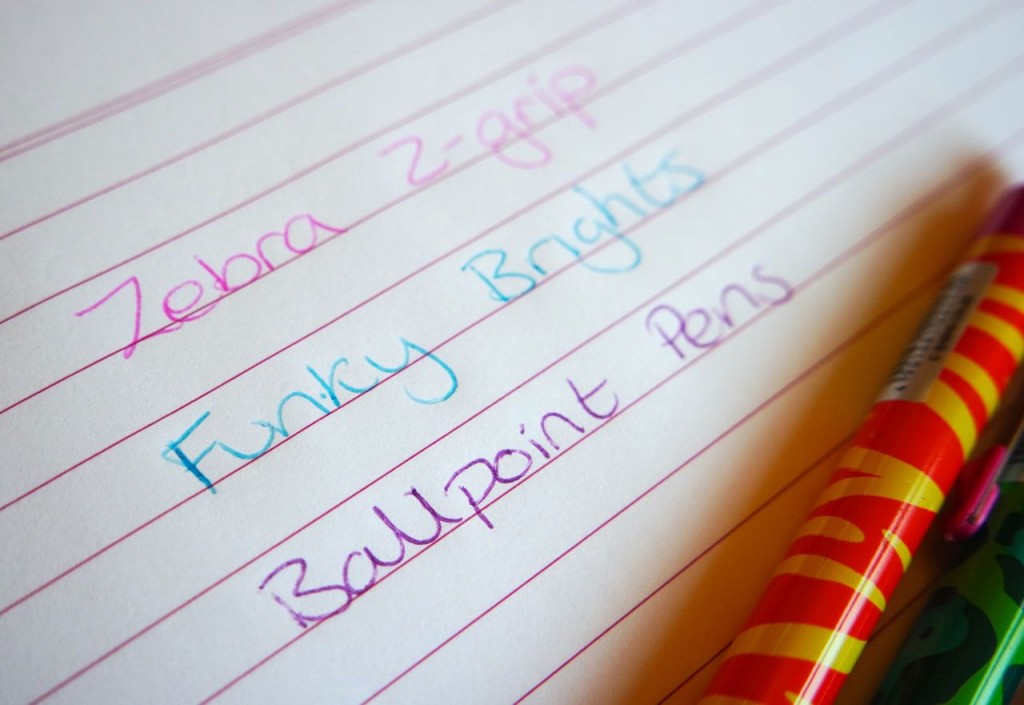 Zebra Z-grip
Funky Brights
Ballpoint Pens